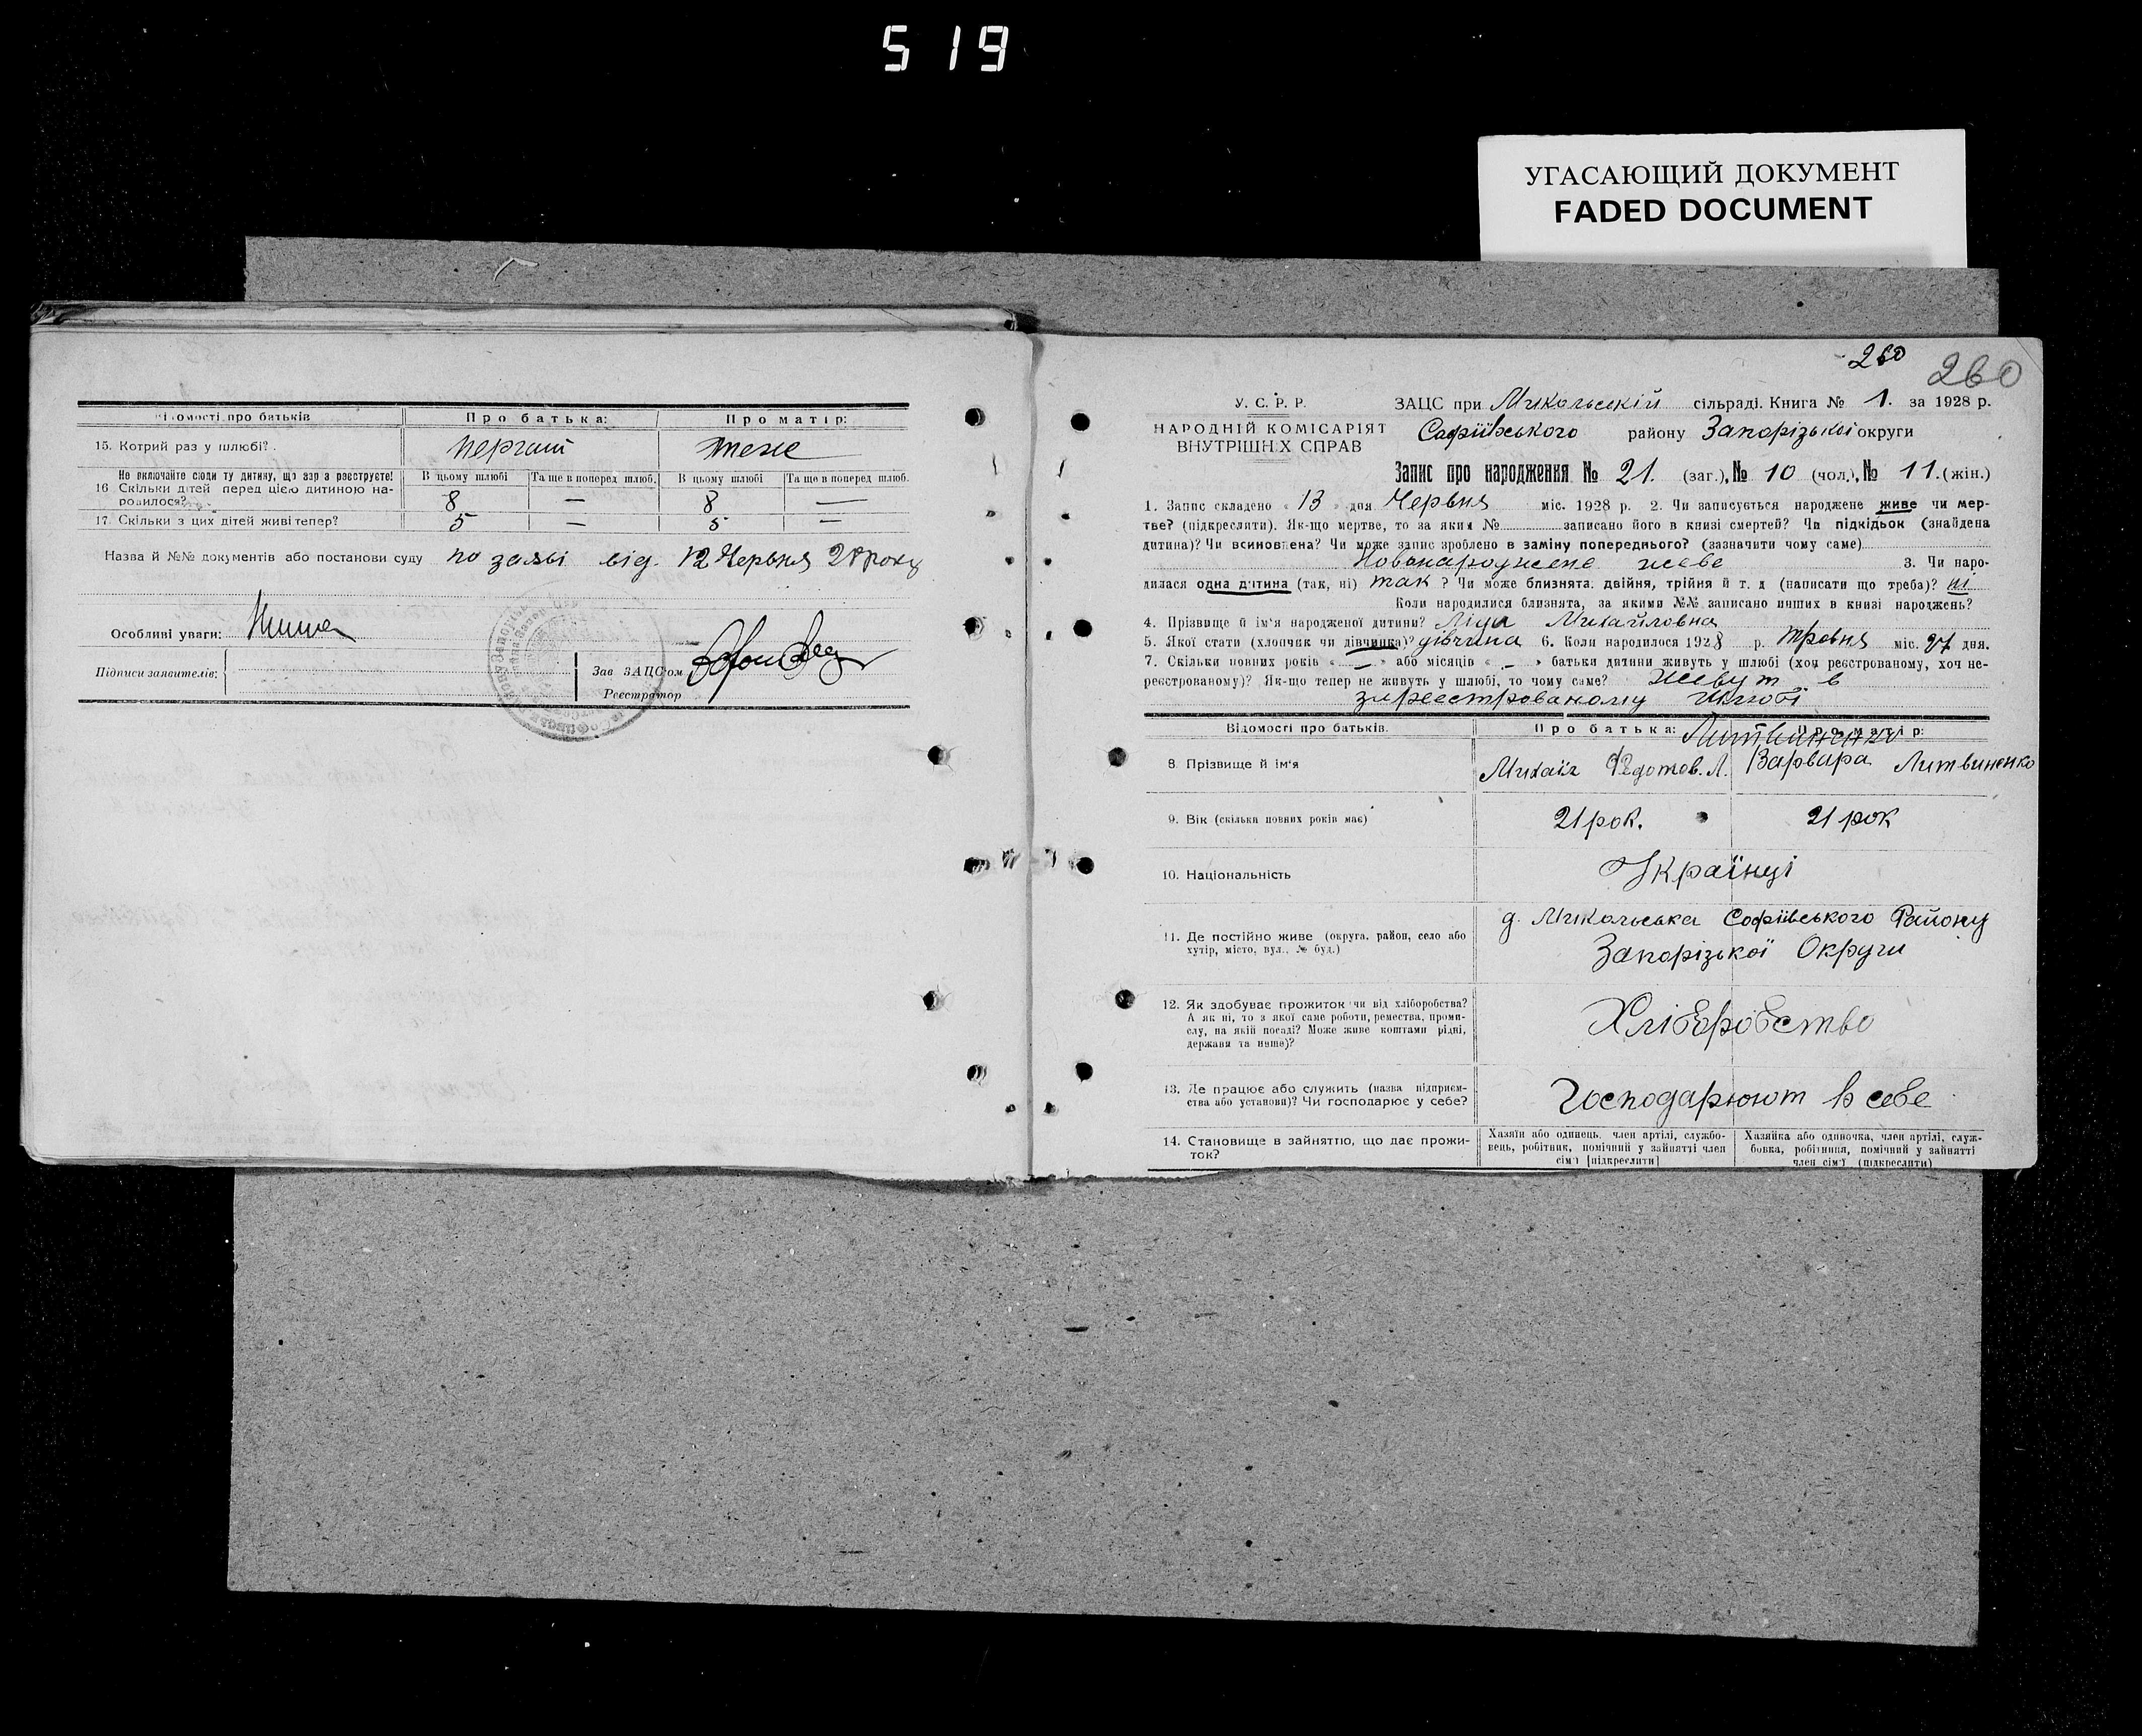 519
УГАСАЮЩИЙ ДОКУМЕНТ
FADED DOCUMENT
Відомості про батьків
Про батька:
Про матір:
15. Котрий раз у шлюбі?
перший
теже
Не включайте сюди ту дитину, що зараз реєструєте!
В цьому шлюбі
Та ще в поперед шлюб.
В цьому шлюбі
Та ще в поперед шлюб.
16 Скільки дітей перед цією дитиною на-
родилося?
8 — 8 —
17. Скільки з цих дітей живі тепер?
5 — 5 —
Назва й №№ документів або постанови суду по заяві від. 12 Червня 28 року
Особливі уваги:
Підписи заявителів:
Зав ЗАЦС'ом
Реєстратор
260
260
У. С. Р. Р.
НАРОДНІЙ КОМІСАРІЯТ
ВНУТРІШНІХ СПРАВ
ЗАЦС при Микольській сільраді. Книга № 1. за 1928 р.
Софіївського району Запорізької округи
Запис про народження № 21. (заг.), № 10 (чол.), № 11. (жін.)
1. Запис складено « 13 » дня Червня міс. 1928 р. 2. Чи записується народжене живе чи мер-
тве? (підкреслити). Як-що мертве, то за яким № записано його в книзі смертей? Чи підкідьок (знайдена
дитина)? Чи всиновлена? Чи може запис зроблено в заміну попереднього? (зазначити чому саме)
Новонароджене живе 3. Чи наро-
дилася одна дитина (так, ні) так ? Чи може близнята: двійня, трійня й т. д (написати що треба)? ні
Коли народилися близнята, за якими №№ записано инших в книзі народжень?
4. Прізвище й ім'я народженої дитини? Ліда Михайловна
5. Якої стати (хлопчик чи дівчинка)? дівчина 6. Коли народилося 1928 р. травня міс. 27 дня.
7. Скільки повних років « — » або місяців « — » батьки дитини живуть у шлюбі (хоч реєстрованому, хоч не-
реєстрованому)? Як-що тепер не живуть у шлюбі, то чому саме? живут в
зареєстрованому шлюбі
Відомості про батьків.
Про батька:
Про матір:
Литвиненко
8. Прізвище й ім'я
Михаїл Федотов. Л.
Варвара Литвиненко
9. Вік (скільки повних років має)
21 рок.
21 рок
10. Національність
Українці
11. Де постійно живе (округа, район, село або
хутір, місто, вул., № буд.)
д. Микольська Софіївського Району
Запорізької Округи
12. Як здобуває прожиток чи від хліборобства?
А як ні, то з якої саме роботи, ремества, проми-
слу, на якій посаді? Може живе коштами рідні,
держави та инше)?
Хліборобство
13. Де працює або служить (назва підприєм-
ства або установи)? Чи господарює у себе?
Господарюют в себе
14. Становище в зайняттю, що дає прожи-
ток?
Хазяїн або одинець, член артілі, службо-
вець, робітник, помічний у зайнятті член
сім'ї [підкреслити]
Хазяйка або одиночка, член артілі, служ-
бовка, робітниця, помічний у зайнятті
член сім'ї (підкреслити)